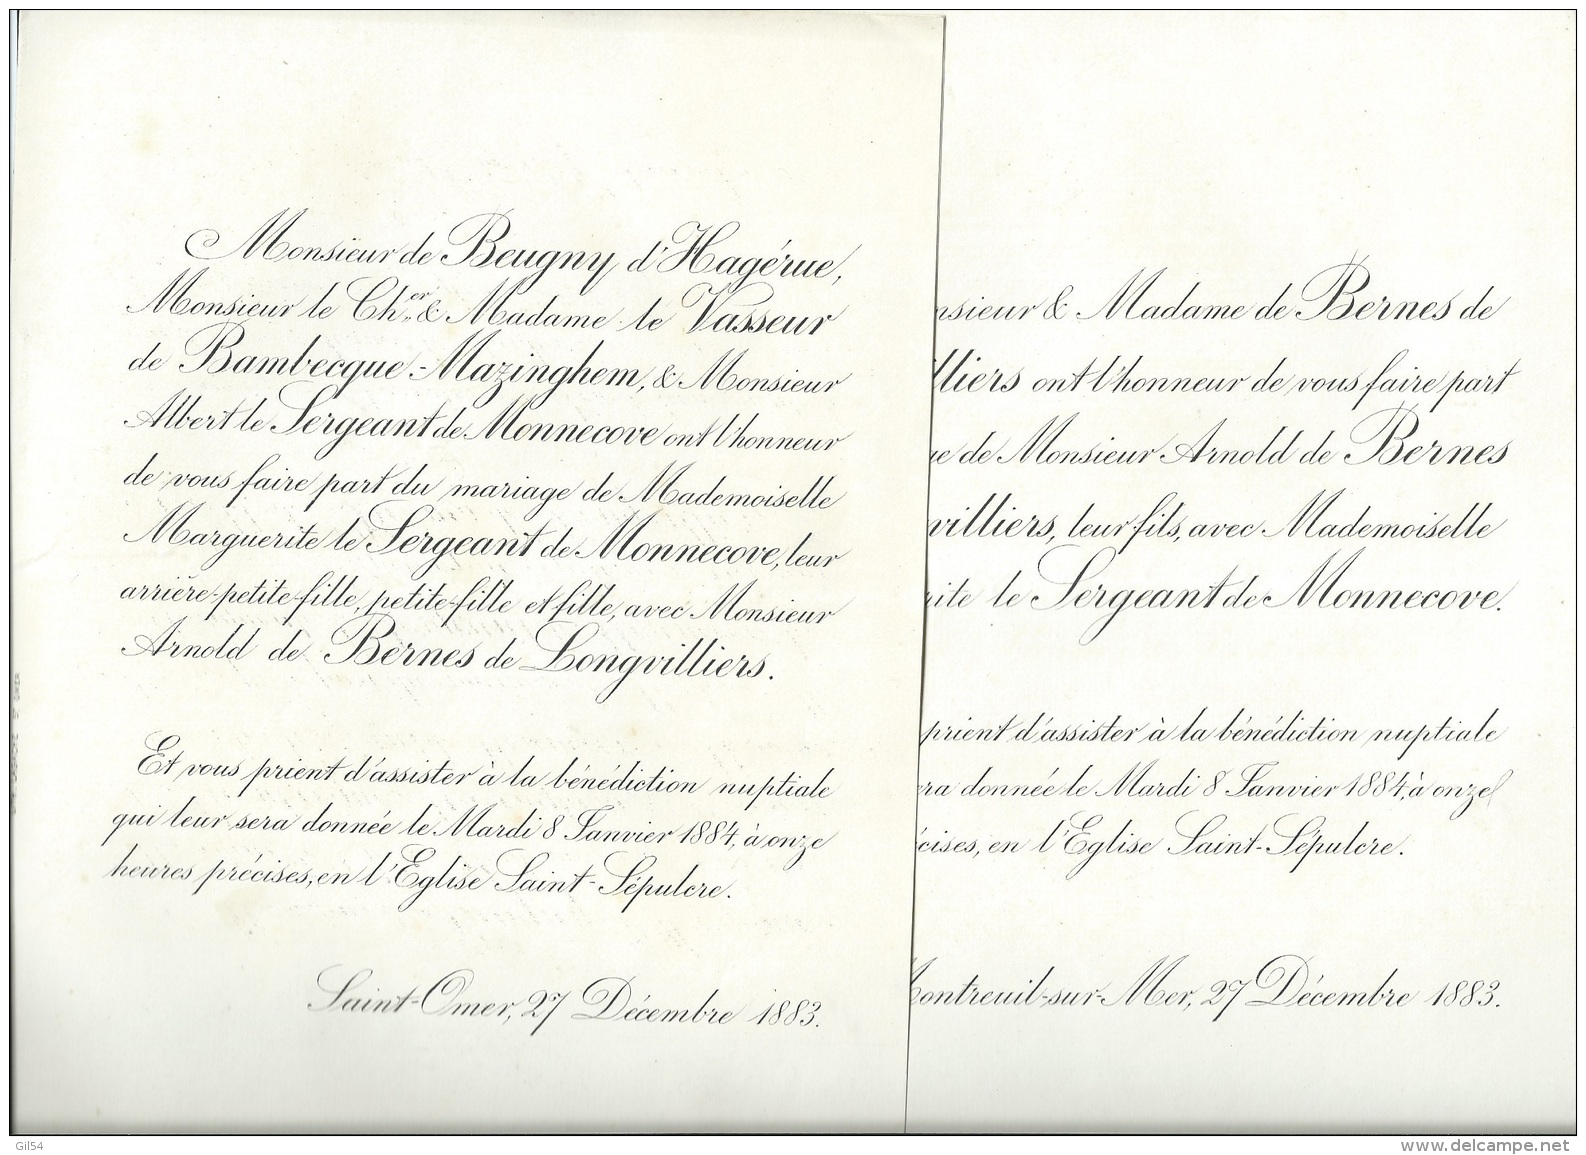 Monsieur de Beugny d'Hagérue,
Monsieur le Ch.er & Madame le Vasseur
de Bambecque-Mazinghem, & Monsieur
Albert le Sergeant de Monnecove ont l'honneur
de vous faire part du mariage de Mademoiselle
Marguerite le Sergeant de Monnecove, leur
arrière-petite-fille, petite-fille et fille, avec Monsieur
Arnold de Bernes de Longvilliers.
Et vous prient d'assister à la bénédiction nuptiale
qui leur sera donnée le Mardi 8 Janvier 1884, à onze
heures précises, en l'Eglise Saint-Sépulcre.
Saint-Omer, 27 Décembre 1883.
nsieur & Madame de Bernes de
lliers ont l'honneur de vous faire part
ge de Monsieur Arnold de Bernes
villiers, leur fils, avec Mademoiselle
rite le Sergeant de Monnecove.
prient d'assister à la bénédiction nuptiale
ra donnée le Mardi 8 Janvier 1884, à onze
cises, en l'Eglise Saint-Sépulcre.
Montreuil-sur-Mer, 27 Décembre 1883.
Gil54
www.delcampe.net